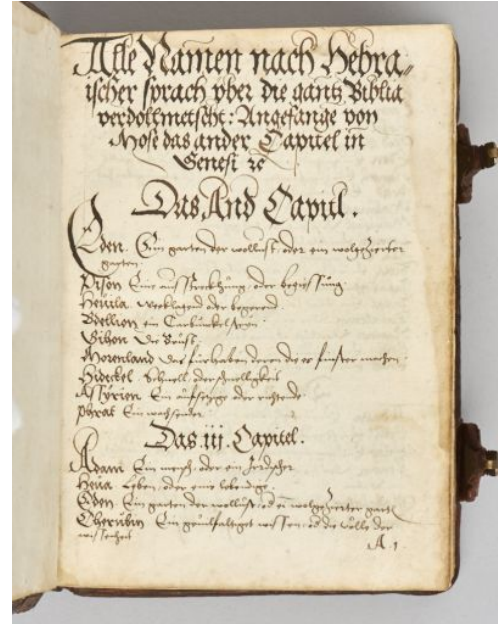 Alle Namen nach Hebra„
ischer sprach vber die gantz Biblia
verdollmetscht: Angefange von
Mose das ander Capitel in
Genesi ⁊c
Das And Capitl.
Eden. Ein garten der wollust: oder ein wolgezierter
garten.
Pison Eine ausstreckhung: oder begiessung
Heuila. wecklagend oder begerend.
Bdellion ein Carbunkelstein.
Gihon Die Brust.
Morenland Das
Hideckel. Schnell: oder schnelligkeit
Assyrien Ein
Phrat Ein wachsender.
Das iij. Capitel.
Adam Ein mensch: oder ein Jrdischer
Heua. Leben: oder eine lebendige.
Eden Ein garten der wollust: od ein wolgezierter gart
Cherubin Ein wissen: od die völle der
wissenheit
A. 1.